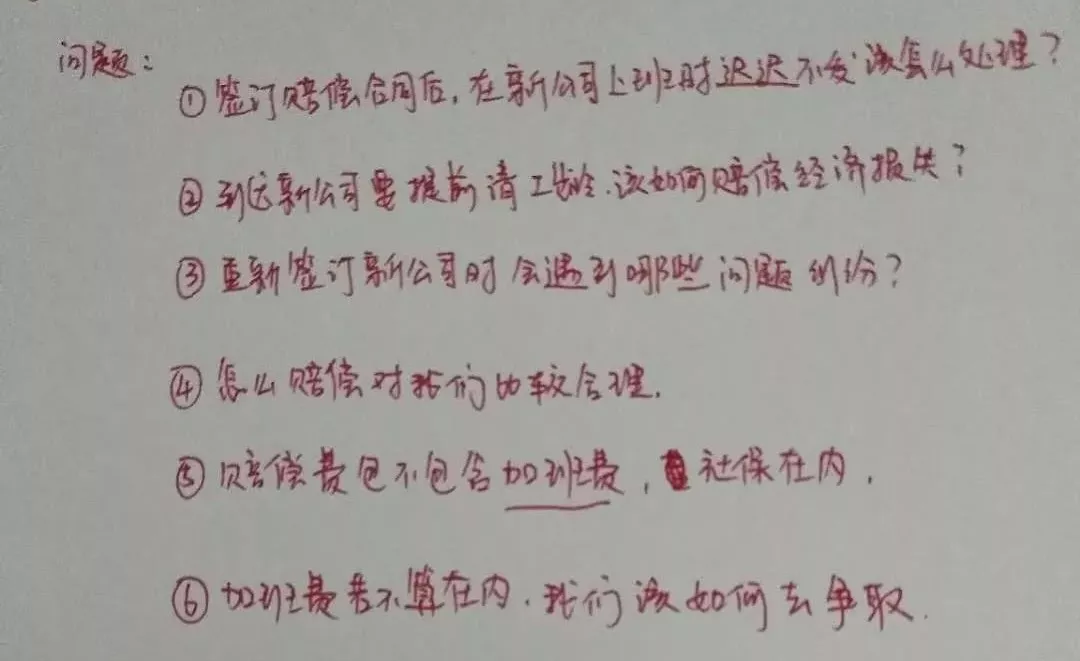 问题：
①签订赔偿合同后，在新公司上班时迟迟不发该怎么处理？
②到达新公司要提前清工龄.该如何赔偿经济损失？
③重新签订新公司时会遇到哪些问题纠纷？
④怎么赔偿对我们比较合理.
⑤赔偿费包不包含加班费，社保在内.
⑥加班费若不算在内.我们该如何去争取.